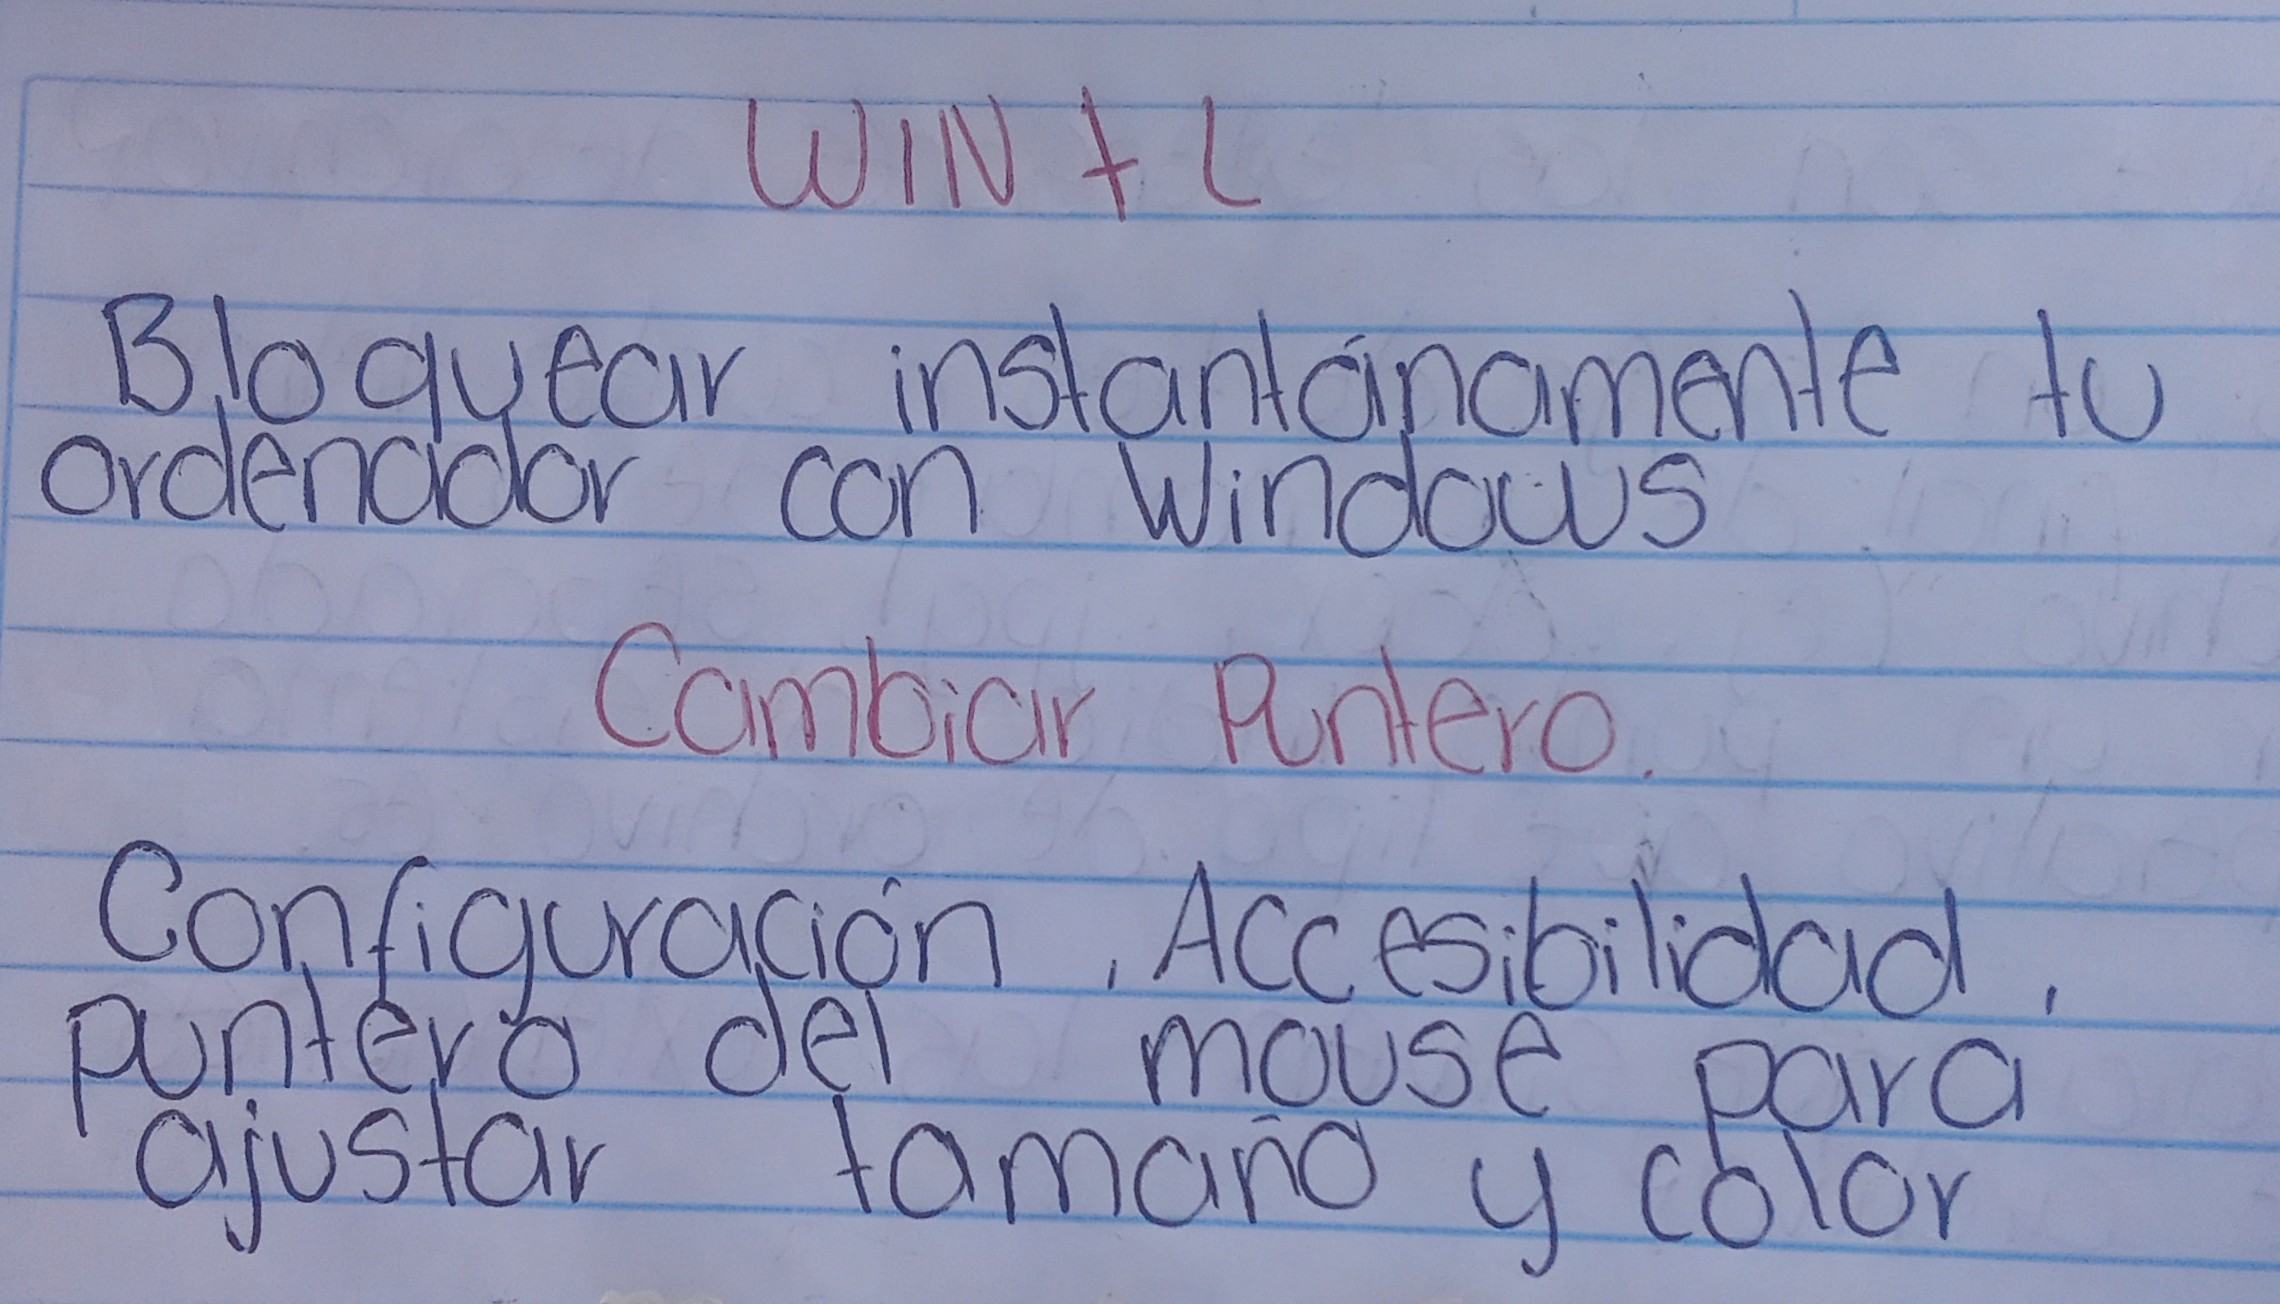 WIN + L
Bloquear instantánamente tu
ordenador con Windows
Cambiar Puntero.
Configuración, Accesibilidad,
puntero del mouse para
ajustar tamaño y color